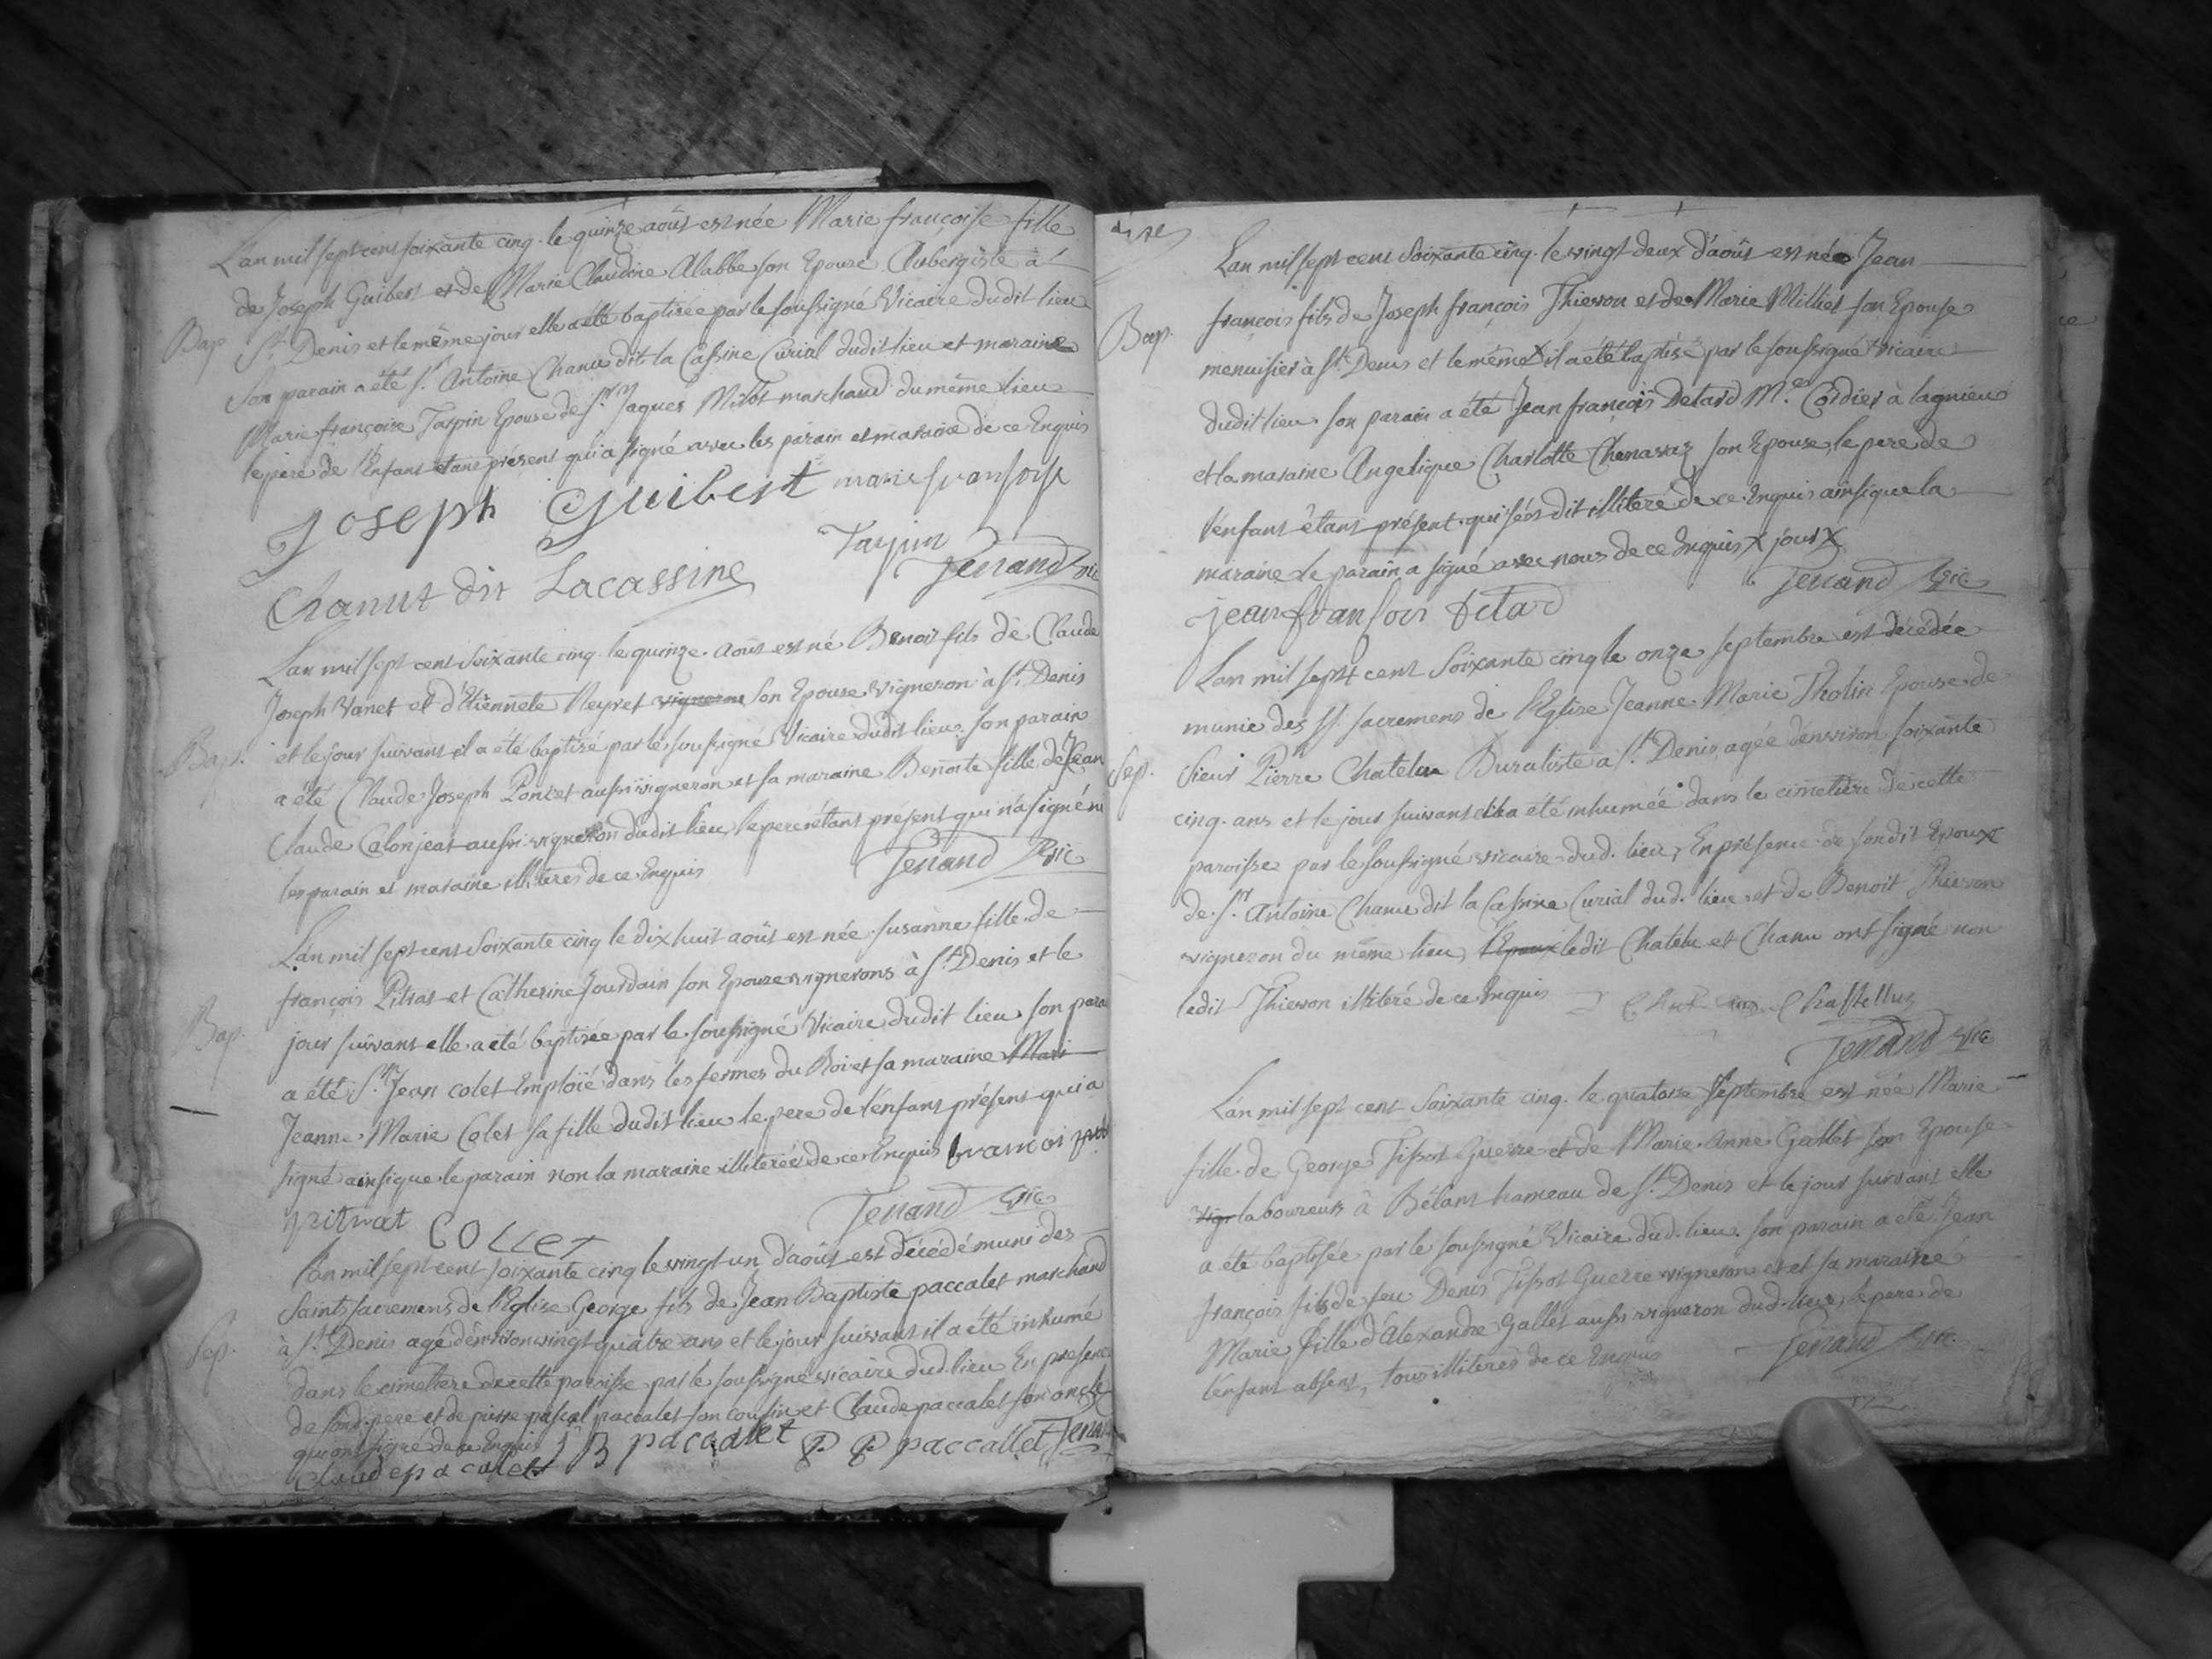 Lan mil sept cent soixante cinq le quinze août est née Marie françoise fille
de Joseph Guibert et de Marie Claudine Alabbe son Epouse Aubergiste à
Bap. St. Denis et le même jour elle a été baptisée par le soussigné Vicaire dudit lieu
son parain a été Sr. Antoine Chanu dit la Cassine Curial dudit lieu et maraine
Marie françoise Tarpin Epouse de Sr. Jaques marchand du même lieu
le pere de l'Enfant étant présent qui a signé avec les parain et maraine de ce Enquis
Joseph Guibert marie fransoise
Tarpin
Chanut dit Lacassine Jenand vic
Lan mil sept cent soixante cinq le quinze août est né Benoit fils de Claude
Joseph Vanet et d'Etiennete Neyret vigneron son Epouse vigneron à St. Denis
Bap. et le jour suivant il a été baptizé par le soussigné Vicaire dudit lieu son parain
a été Claude Joseph Poncet aussi vigneron et sa maraine Benoite fille de Jean
Claude Calonjeat aussi vigneron dudit lieu, le pere étant présent qui n'a signé ni
les parain et maraine illiterés de ce Enquis Jenand vic
Lan mil sept cent soixante cinq le dix huit août est née susanne fille de
françois Pitrat et Catherine Jourdain son Epouse vignerons à St. Denis et le
Bap. jour suivant elle a été baptisée par le soussigné Vicaire dudit lieu son para
a été Sr. Jean colet Emploïé dans les fermes du Roi et sa maraine Mari
Jeanne Marie Colet sa fille dudit lieu le pere de l'enfant présent qui a
signé ainsi que le parain non la maraine illiterée de ce Enquis francoi
pitrat COLLET Jenand vic
Lan mil sept cent soixante cinq le vingt un d'août est décédé muni des
Saints sacremens de l'Eglise George fils de Jean Baptiste paccalet marchand
Sep. à St. Denis agé d'environ vingt quatre ans et le jour suivant il a été inhumé
dans le cimetiere de cette paroisse par le soussigné vicaire dud. lieu En presence
de sond. pere et de pierre pascal paccalet son cousin et Claude paccalet son oncle
qui ont signé de ce Enquis J B pacalet P P paccallet Jenan
Claude pacalet
Lan mil sept cent soixante cinq le vingt deux d'août est née Jean
françois fils de Joseph françois Thievon et de Marie Milliet son Epouse
Bap. menuisier à St. Denis et le même X il a été baptisé par le soussigné vicaire
dudit lieu son parain a été Jean françois Detard Me. Cordier à lagnieu
et la maraine Angelique Charlotte Chenavaz son Epouse, le pere de
l'enfant étant présent qui s'est dit illiteré de ce Enquis ainsi que la
maraine le parain a signé avec nous de ce Enquis X jour X
jean fransois detard Jenand vic
Lan mil sept cent soixante cinq le onze septembre est décédée
munie des SS. sacremens de l'Eglise Jeanne Marie Tholin Epouse de
Sep. Sieur Pierre Chatelu Buraliste a St. Denis agée d'environ soixante
cinq ans et le jour suivant elle a été inhumée dans le cimetiere de cette
paroisse par le soussigné vicaire dud. lieu, En présence de sondit Epoux
de Sr. Antoine Chanu dit la Cassine Curial dud. lieu et de Benoit Thievon
vigneron du même lieu, l'Epoux ledit Chatelu et Chanu ont signé non
ledit Thievon illiteré de ce Enquis Chastellus
Jenand vic
Lan mil sept cent soixante cinq le quatorze Septembre est née Marie
fille de George Tissot Guerre et de Marie Anne Gallet son Epouse
vign laboureurs à Bélant hameau de St. Denis et le jour suivant elle
a été baptisée par le soussigné Vicaire dud. lieu son parain a été Jean
françois fils de feu Denis Tissot Guerre vigneron et et sa maraine
Marie fille d'Alexandre Gallet aussi vigneron dud. lieu, le pere de
l'enfant absent, tous illiterés de ce Enquis Jenand vic.